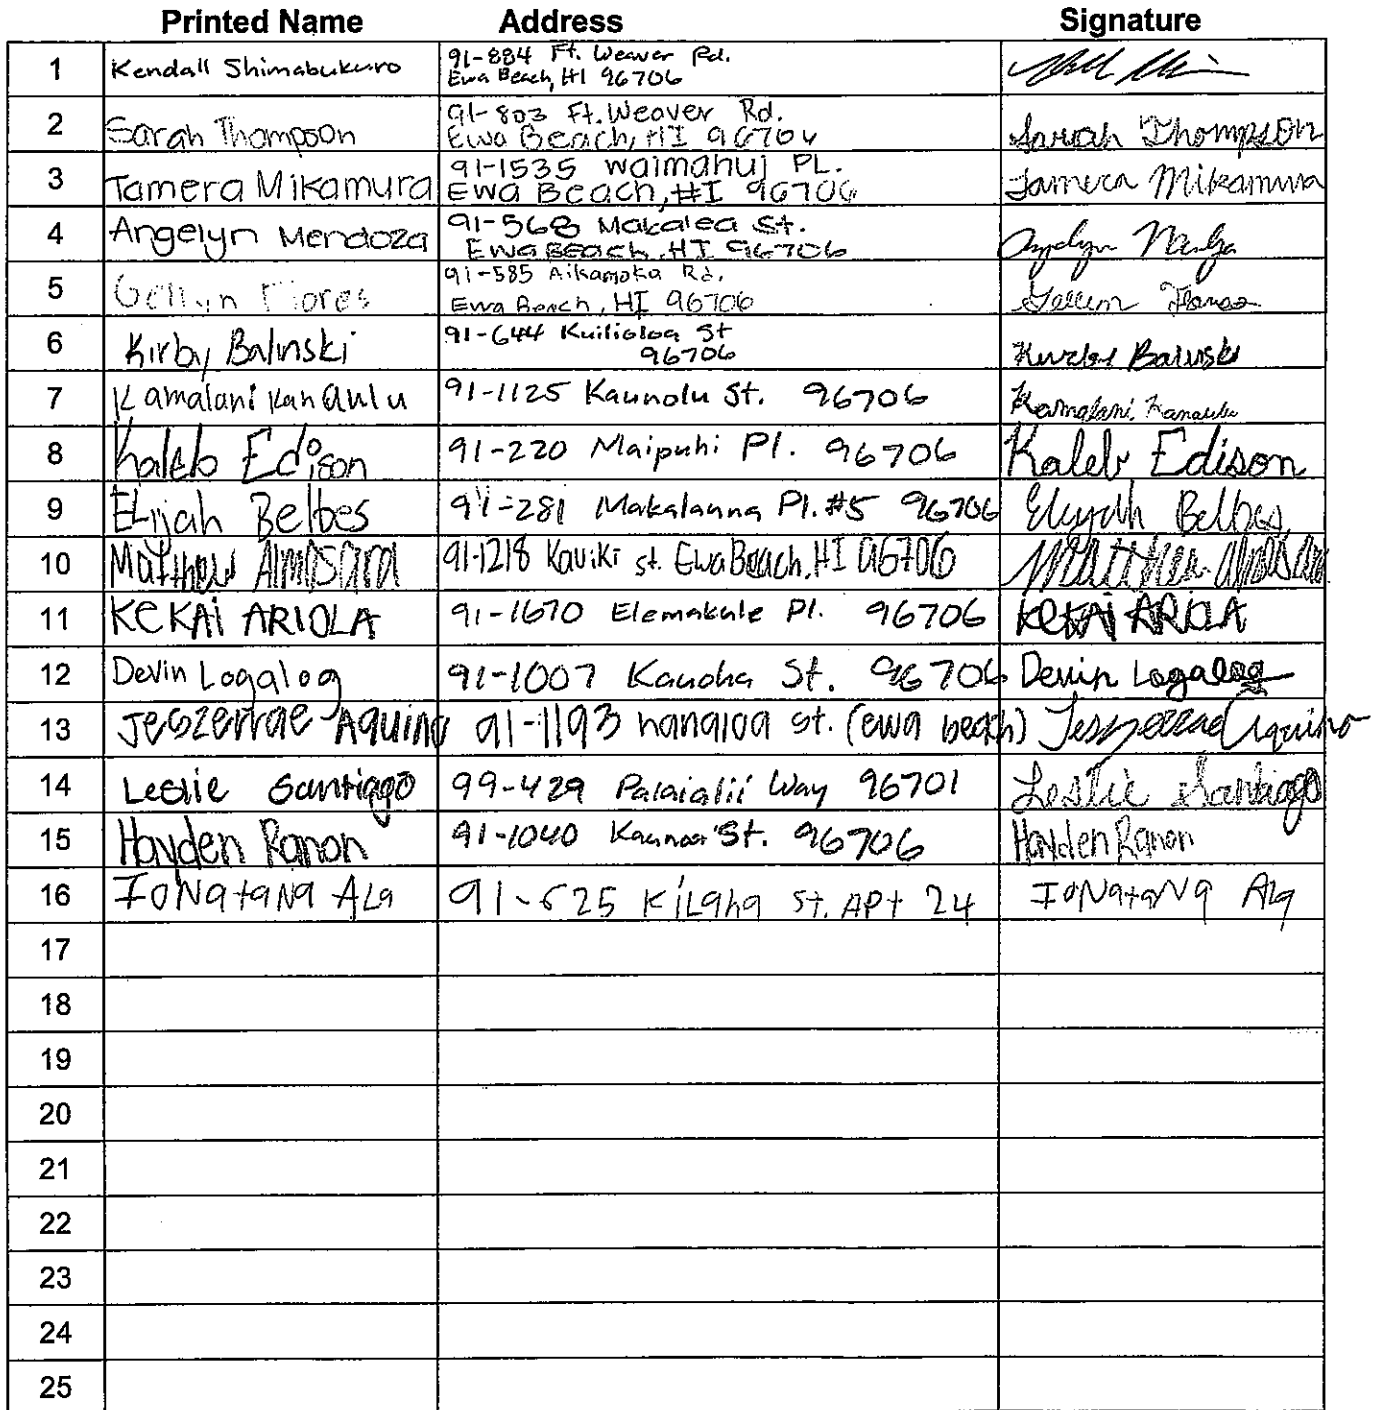 Printed Name Address Signature
1 Kendall Shimabukuro 91-884 Ft. Weaver Rd.
Ewa Beach, HI 96706
2 Sarah Thompson 91-803 Ft. Weaver Rd.
Ewa Beach, HI 96706 Sarah Thompson
3 Tamera Mikamura 91-1535 Waimahui PL.
Ewa Beach, HI 96706 Tamera Mikamura
4 Angelyn Mendoza 91-568 Makalea St.
Ewa Beach, HI 96706
5 Flores 91-585 Aikamoka Rd.
Ewa Beach, HI 96706 Flores
6 Kirby Balinski 91-644 Kuilioloa St
96706 Kirby Balinski
7 Kamalani Kanaulu 91-1125 Kaunolu St. 96706 Kamalani Kanaulu
8 Kaleb Edison 91-220 Maipuhi Pl. 96706 Kaleb Edison
9 Elijah Belbes 91-281 Makalauna Pl. #5 96706 Elijah Belbes
10 Matthew Almosara 91-1218 Kaviki st. Ewa Beach, HI 96706 Matthew Almosara
11 KEKAi ARIOLA 91-1670 Elemakule Pl. 96706 KEKAi ARIOLA
12 Devin Logalog 91-1007 Kauoha St. 96706 Devin Logalog
13 Jeszerrae Aquino 91-1193 hanaloa st. (ewa beach) Jeszerrae Aquino
14 Leslie Santiago 99-429 Palaialii Way 96701 Leslie Santiago
15 Hayden Ranon 91-1040 Kaunoa St. 96706 Hayden Ranon
16 IoNataNa ALa 91-625 KiLaha St. APt 24 IoNataNa Ala
17
18
19
20
21
22
23
24
25